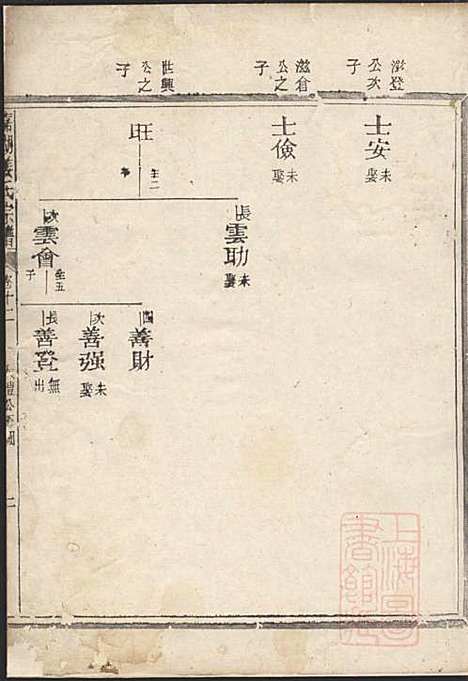 滋登公次子
滋倉公之子
世興公之子
士安
未娶
士儉
未娶
旺
生二
長
雲助
未娶
次
雲會
生五子
四
善財
次
善强
未娶
長
善登
無出
氏宗譜
卷十二
公系圖
二
上海圖書館藏